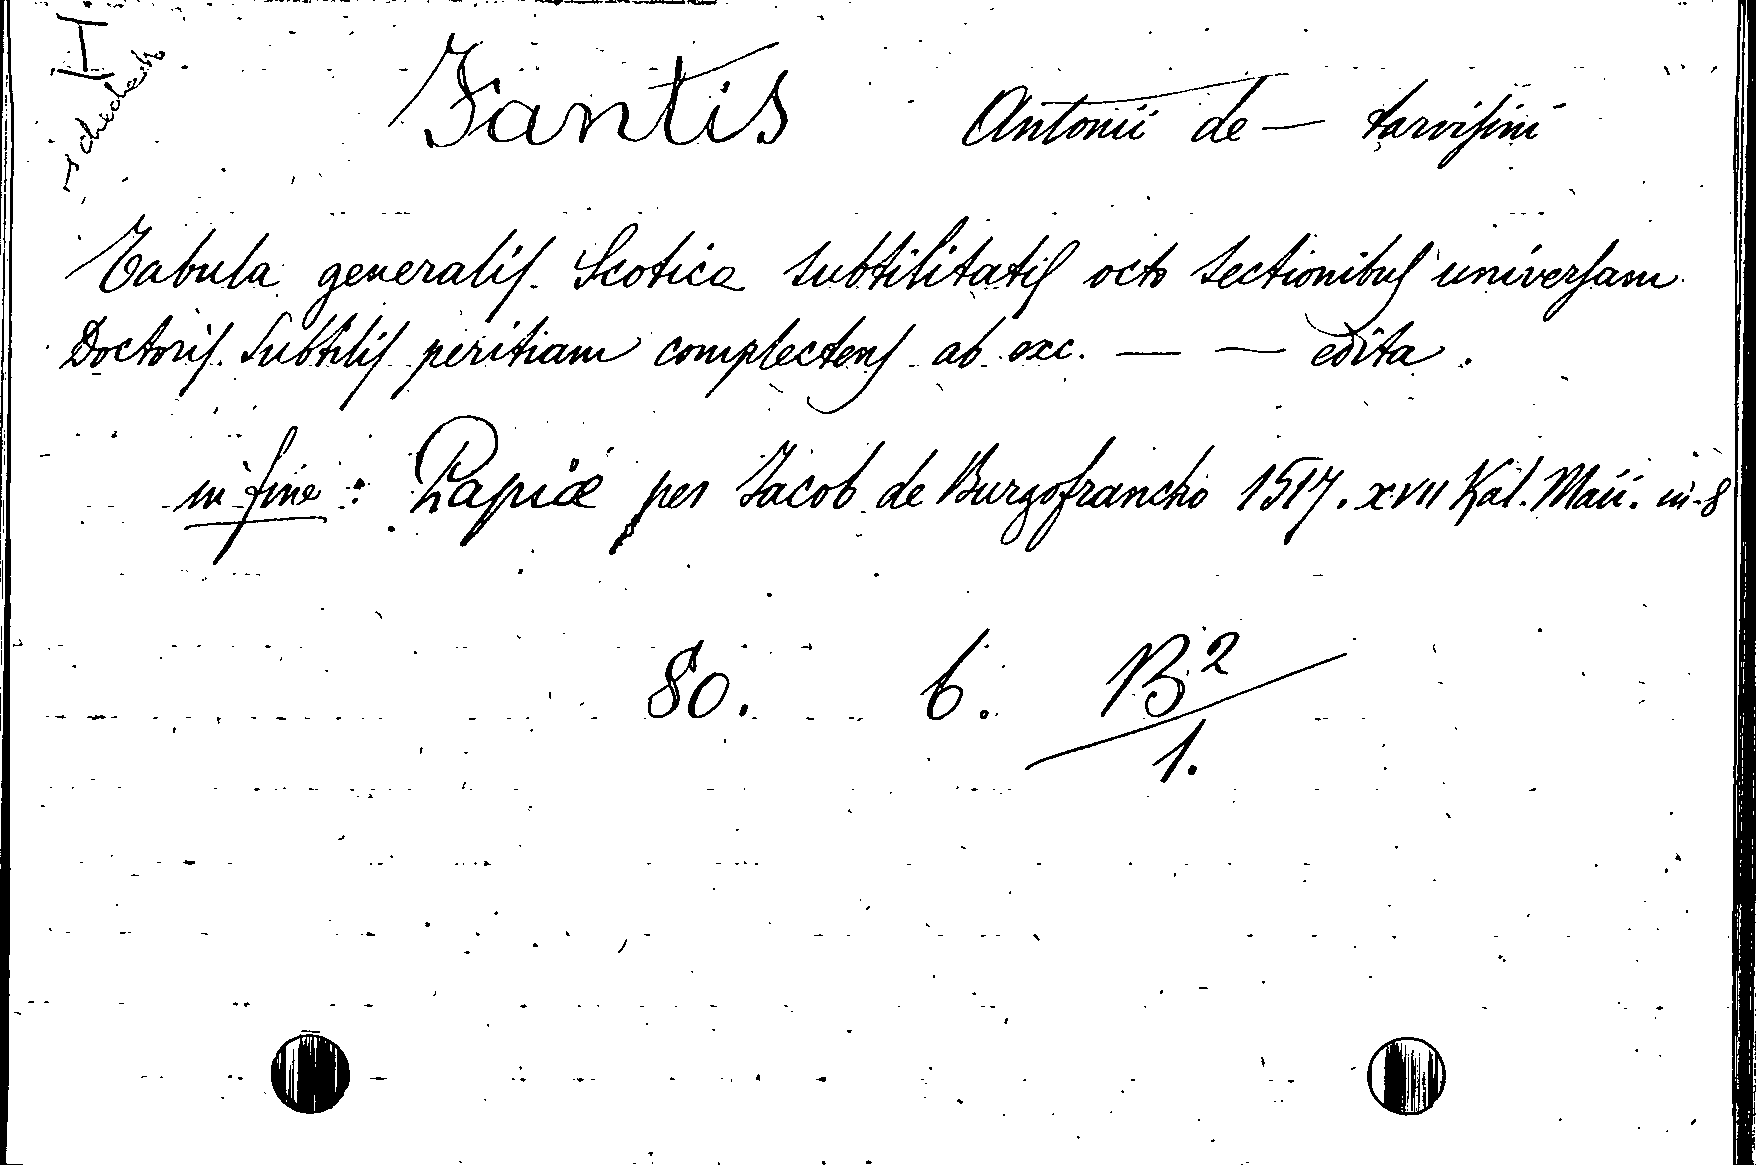 H
schedech
Fantis Antonii de — tarvisini
Tabula generalis Scotica subtilitatis octo sectionibus universam
Doctoris Subtilis peritiam complectens ab exc. — — edita.
in fine: Papiæ per Jacob de Burgofrancho 1517. XVII Kal. Maii. in-8
80. 6. B²/1.